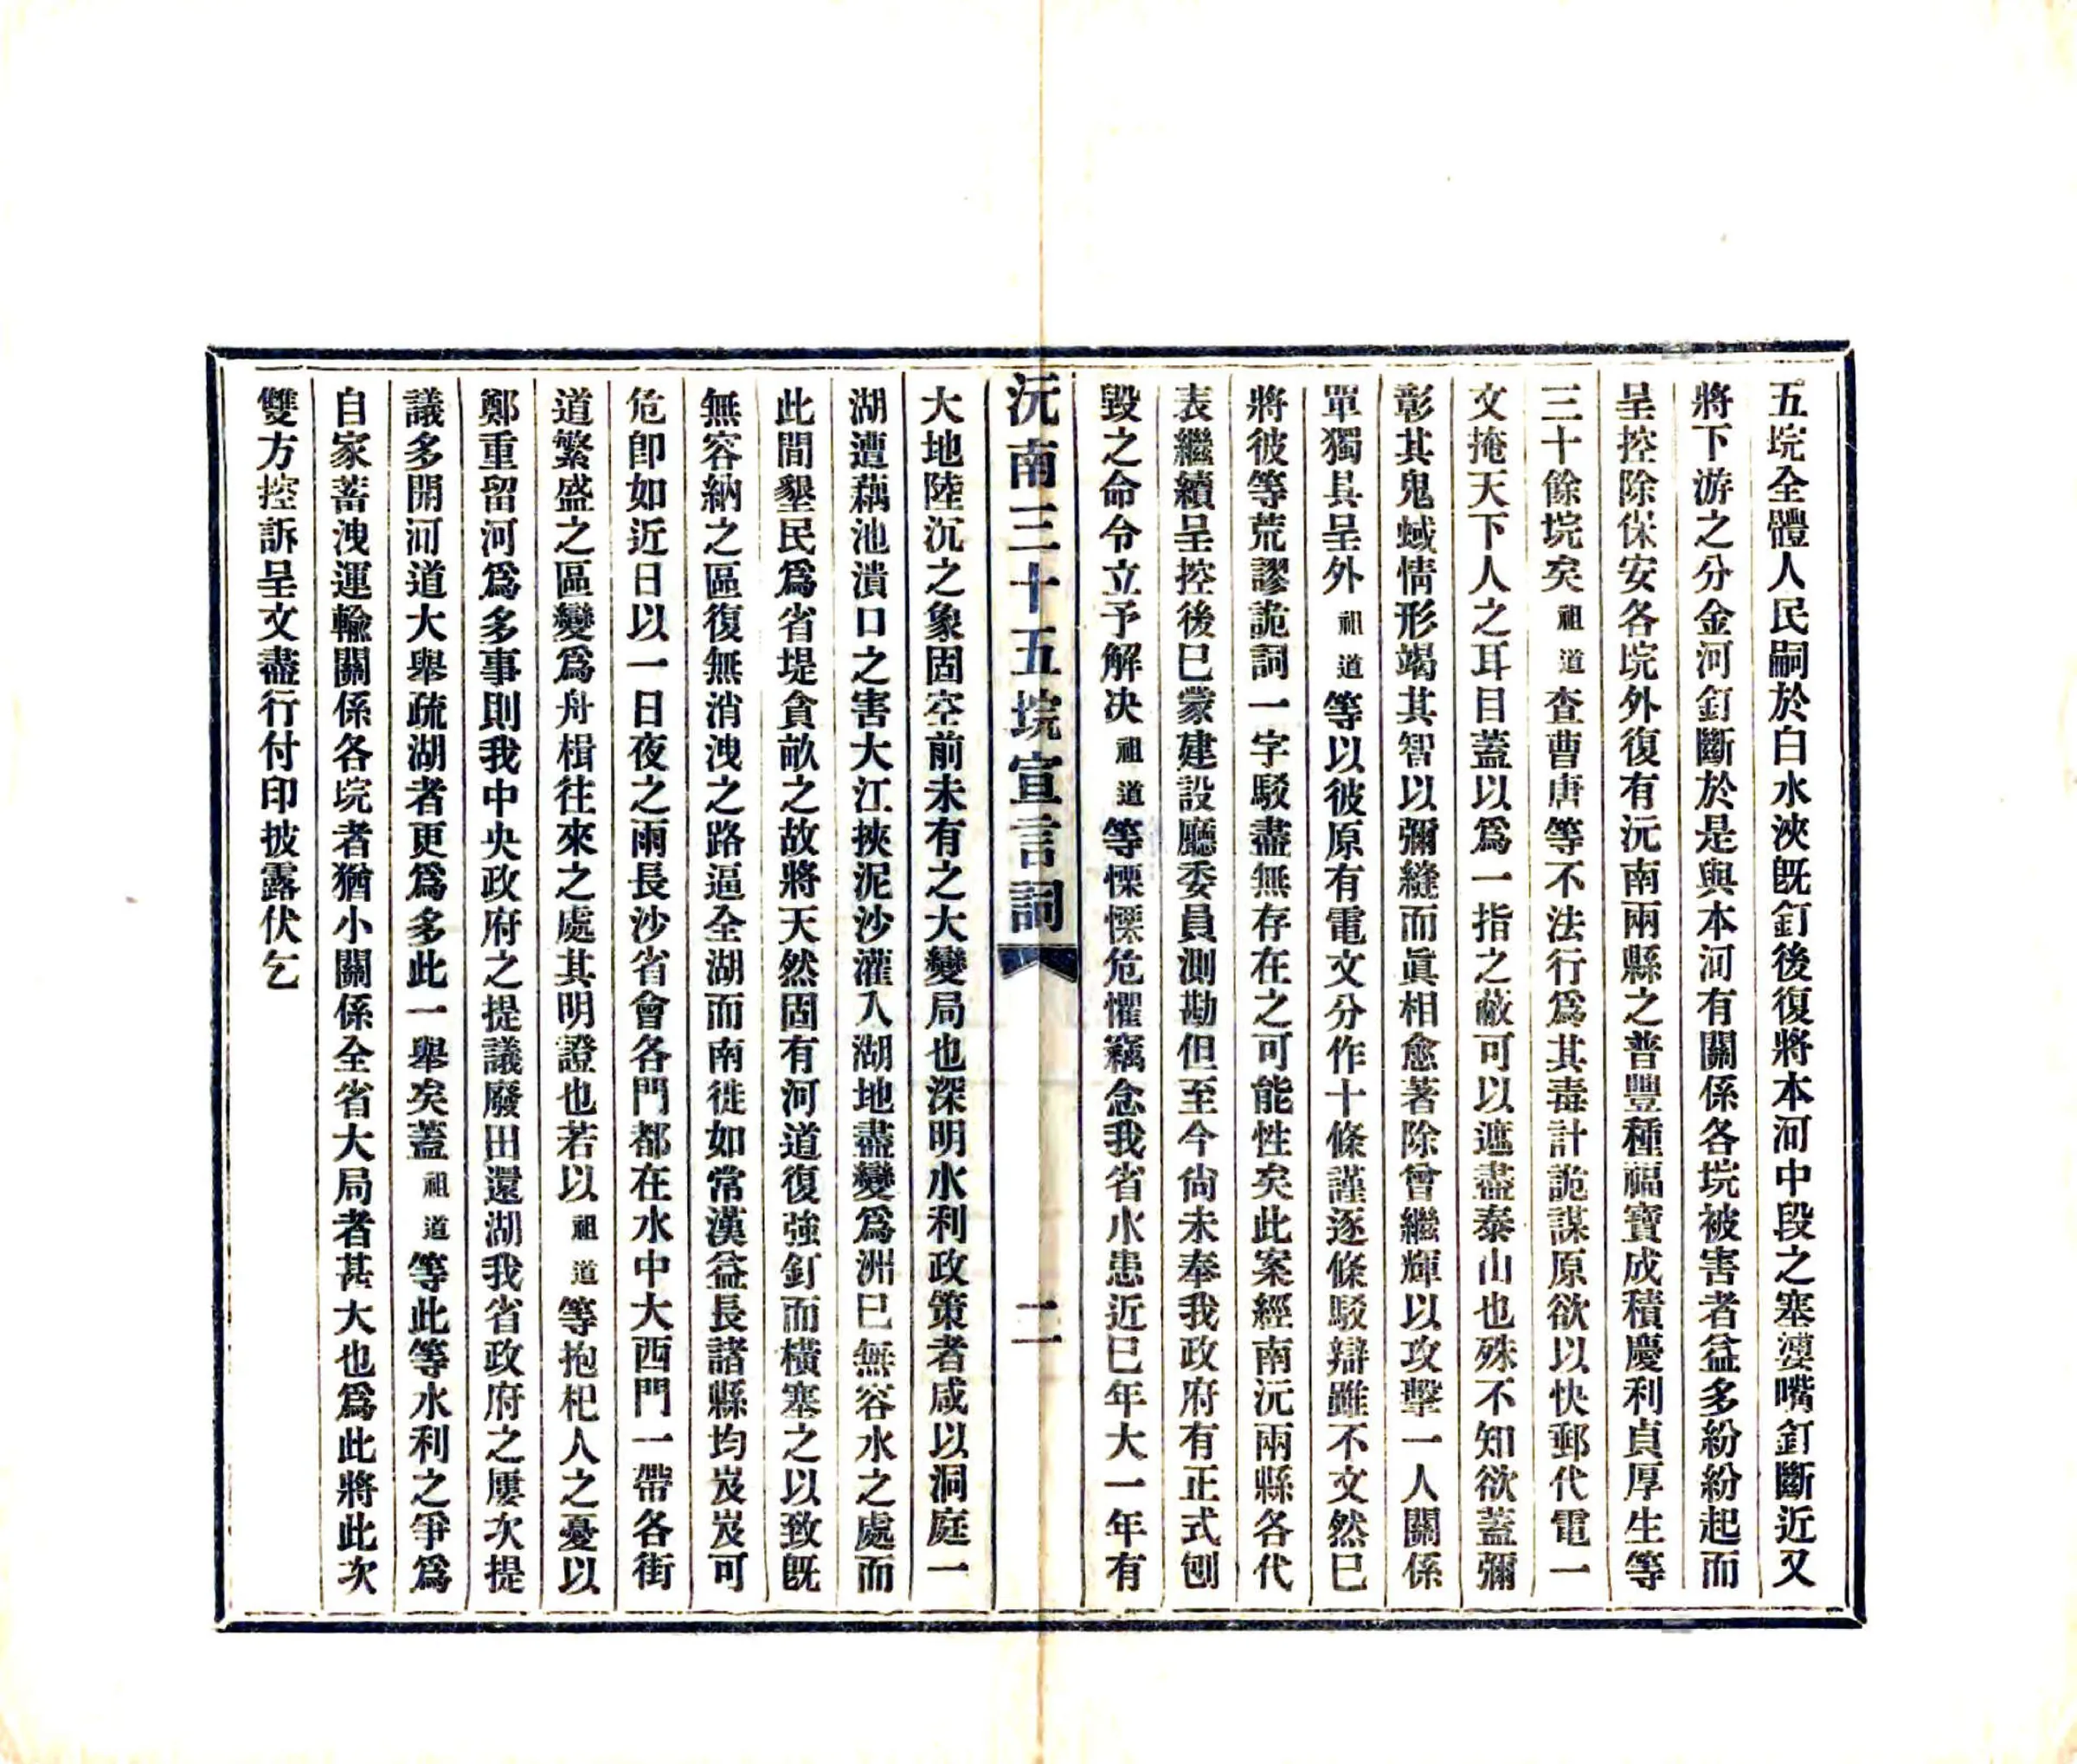 五垸全體人民嗣於白水浹既釘後復將本河中段之塞瀴嘴釘斷近又
將下游之分金河釘斷於是與本河有關係各垸被害者益多紛紛起而
呈控除保安各垸外復有沅南兩縣之普豐種福寶成積慶利貞厚生等
三十餘垸矣祖道查曹唐等不法行爲其毒計詭謀原欲以快郵代電一
文掩天下人之耳目蓋以爲一指之蔽可以遮盡泰山也殊不知欲蓋彌
彰其鬼蜮情形竭其智以彌縫而眞相愈著除曾繼輝以攻擊一人關係
單獨具呈外祖道等以彼原有電文分作十條謹逐條駁辯雖不文然已
將彼等荒謬詭詞一字駁盡無存在之可能性矣此案經南沅兩縣各代
表繼續呈控後已蒙建設廳委員測勘但至今尙未奉我政府有正式刨
毀之命令立予解决祖道等慄慄危懼竊念我省水患近已年大一年有
沅南三十五垸宣言詞 二
大地陸沉之象固空前未有之大變局也深明水利政策者咸以洞庭一
湖遭藕池潰口之害大江挾泥沙灌入湖地盡變爲洲已無容水之處而
此間墾民爲省堤貪畝之故將天然固有河道復強釘而橫塞之以致既
無容納之區復無消洩之路逼全湖而南徙如常漢益長諸縣均岌岌可
危卽如近日以一日夜之雨長沙省會各門都在水中大西門一帶各街
道繁盛之區變爲舟楫往來之處其明證也若以祖道等抱杞人之憂以
鄭重留河爲多事則我中央政府之提議廢田還湖我省政府之屢次提
議多開河道大舉疏湖者更爲多此一舉矣蓋祖道等此等水利之爭爲
自家蓄洩運輸關係各垸者猶小關係全省大局者甚大也爲此將此次
雙方控訴呈文盡行付印披露伏乞